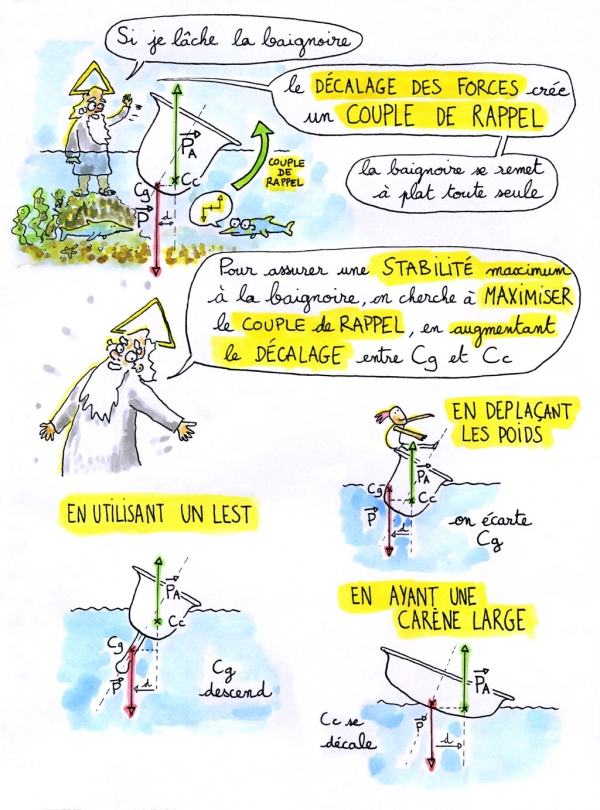 Si je lâche la baignoire
le DÉCALAGE DES FORCES crée
un COUPLE DE RAPPEL
la baignoire se remet
à plat toute seule
PA
Cg
Cc
P
d
COUPLE
DE
RAPPEL
Pour assurer une STABILITÉ maximum
à la baignoire, on cherche à MAXIMISER
le COUPLE de RAPPEL, en augmentant
le DÉCALAGE entre Cg et Cc
EN DEPLAÇANT
LES POIDS
PA
Cg
Cc
P
d
on écarte
Cg
EN UTILISANT UN LEST
PA
Cc
Cg
P
d
Cg
descend
EN AYANT UNE
CARÈNE LARGE
PA
P
d
Cc se
décale